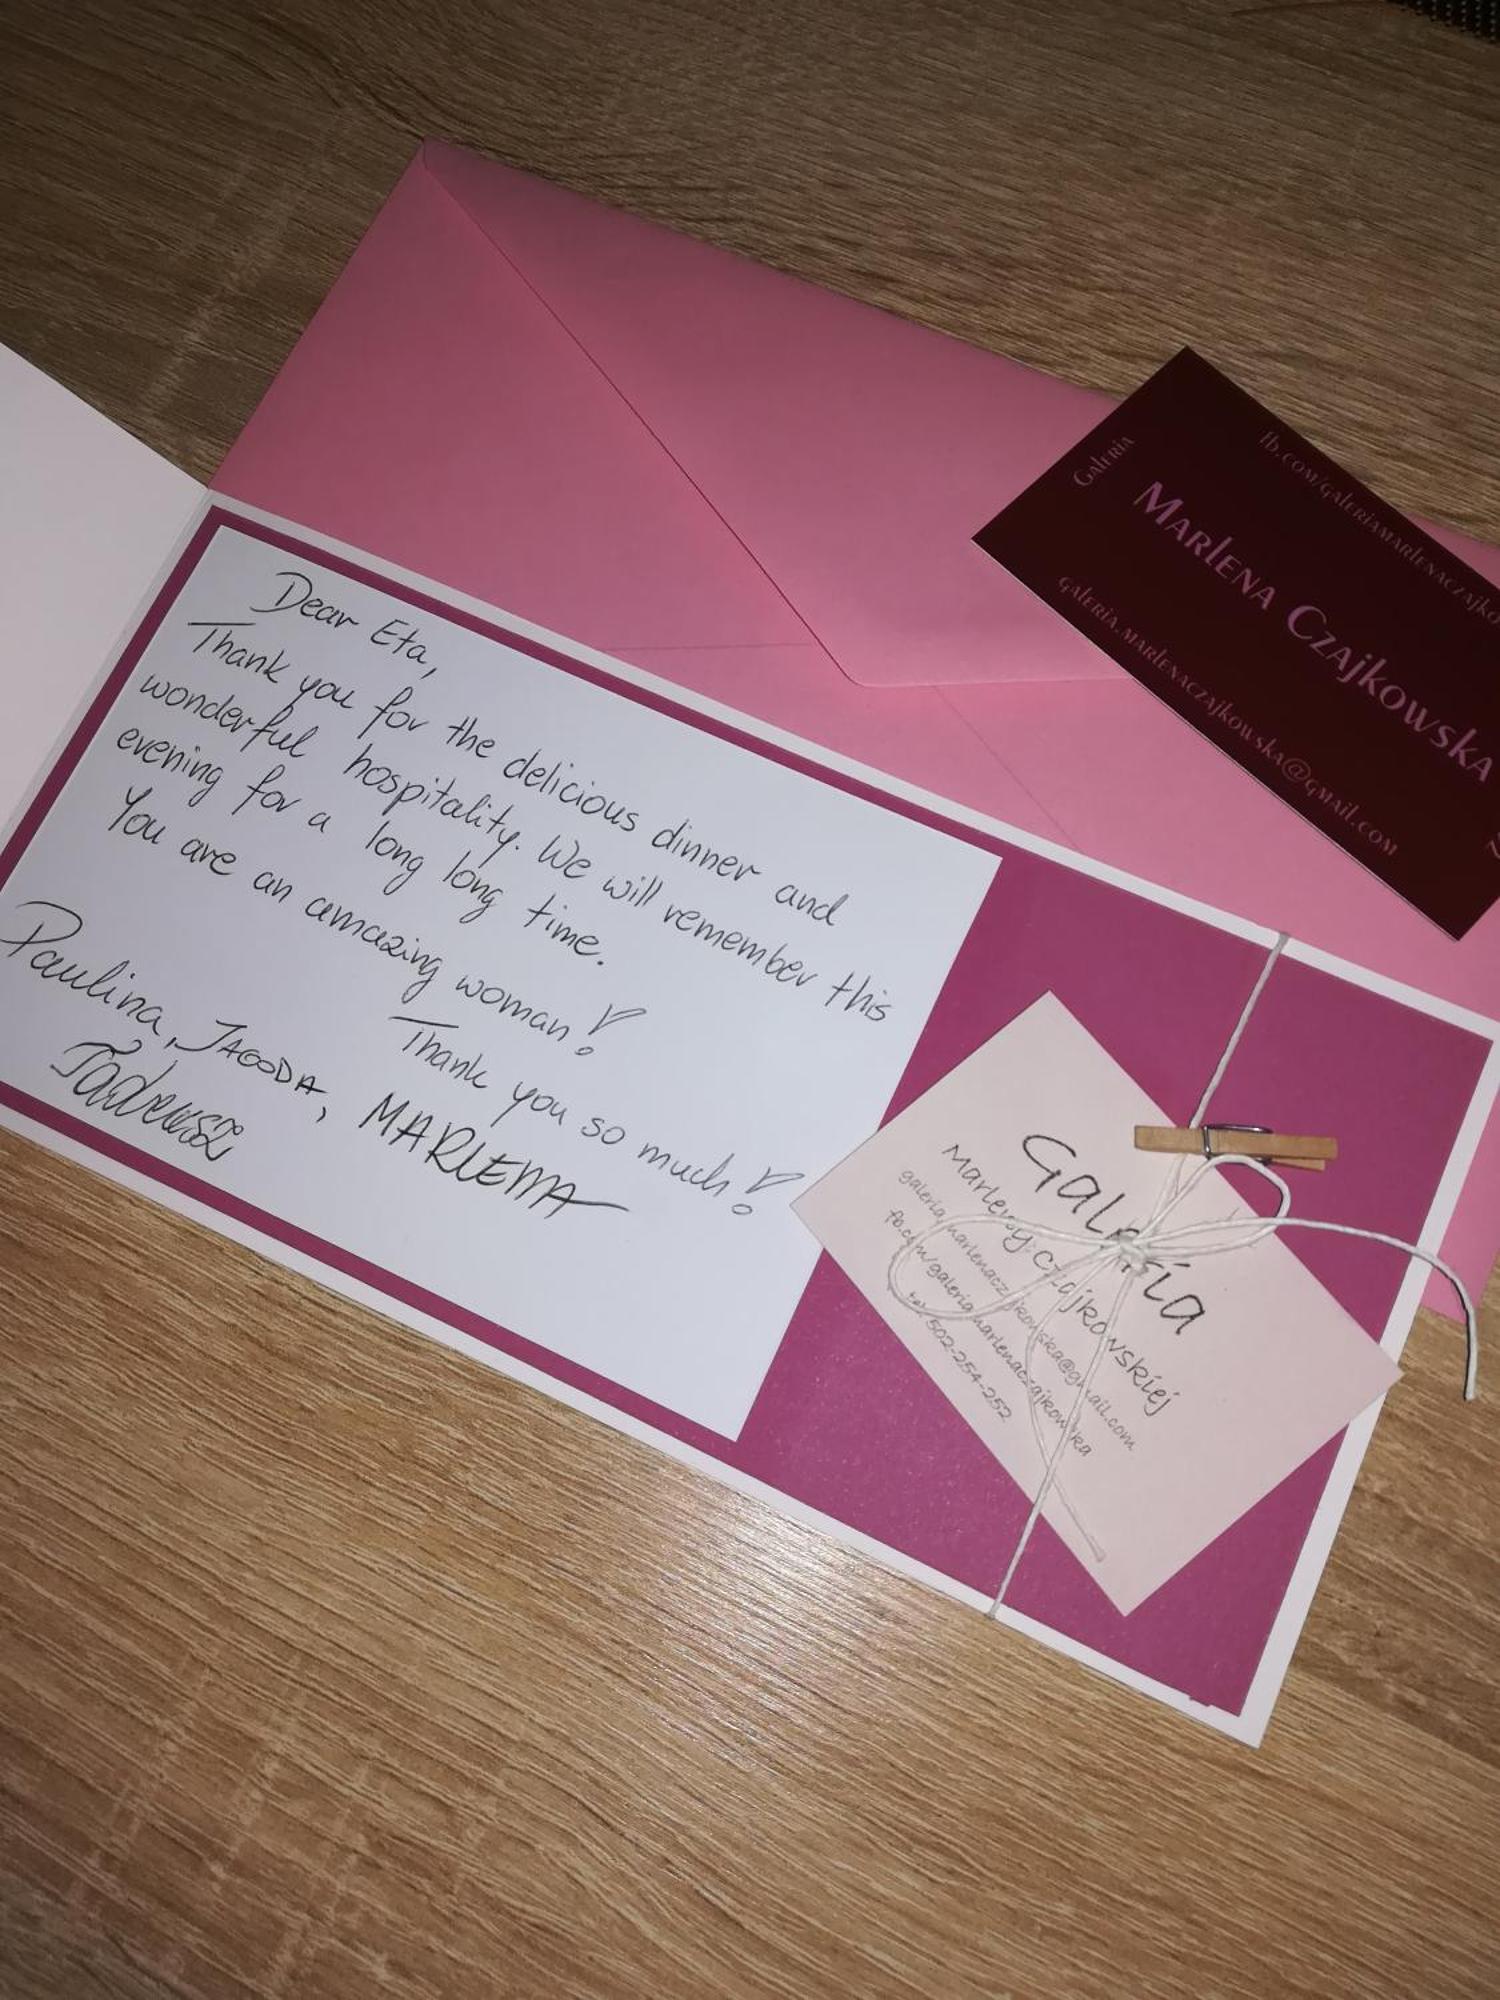 Dear Eta,
Thank you for the delicious dinner and
wonderful hospitality. We will remember this
evening for a long long time.
You are an amazing woman!
Thank you so much!
Paulina, JAGODA, MARLENA
Tadeusz
Galeria
Marleny Czajkowskiej
galeria.marlenaczajkowska@gmail.com
fb.com/galeriamarlenaczajkowska
tel. 502-254-252
Galeria
fb.com/galeriamarlenaczajko
Marlena Czajkowska
galeria.marlenaczajkowska@gmail.com